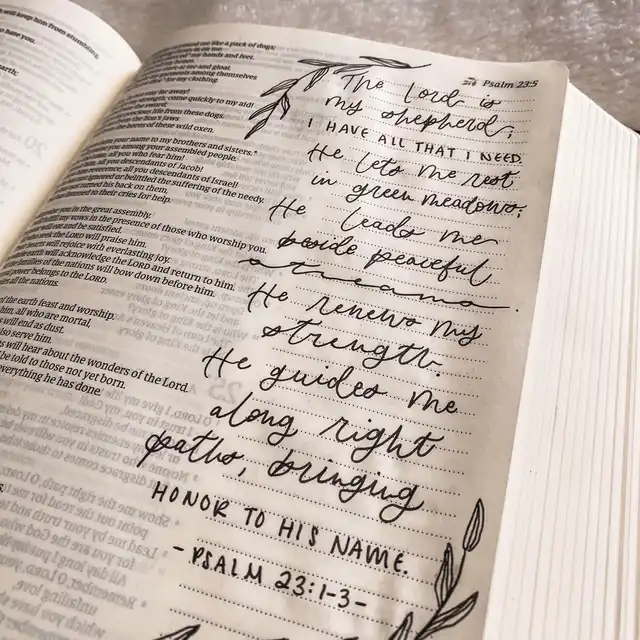 will keep him from stumbling.
hate you.
earth;
me like a pack of dogs;
my hands and feet.
and gloat.
among themselves
my clothing
far away!
strength; come quickly to my aid!
life from these dogs.
lion's jaws
horns of these wild oxen.
your name to my brothers and sisters.
you among your assembled people.
all you who fear him!
you descendants of Jacob!
reverence, all you descendants of Israel!
or belittled the suffering of the needy.
turned his back on them,
to their cries for help.
you in the great assembly.
my vows in the presence of those who worship you.
will eat and be satisfied.
seek the LORD will praise him.
hearts will rejoice with everlasting joy.
earth will acknowledge the LORD and return to him.
families of the nations will bow down before him.
power belongs to the LORD.
all the nations.
of the earth feast and worship.
him, all who are mortal,
will end as dust.
also serve him.
will hear about the wonders of the Lord.
be told to those not yet born.
everything he has done.
Psalm 23:5
The Lord is
my shepherd;
I HAVE ALL THAT I NEED.
He lets me rest
in green meadows;
He leads me
beside peaceful
streams.
He renews my
strength.
He guides me
along right
paths, bringing
HONOR TO HIS NAME.
- PSALM 23:1-3 -